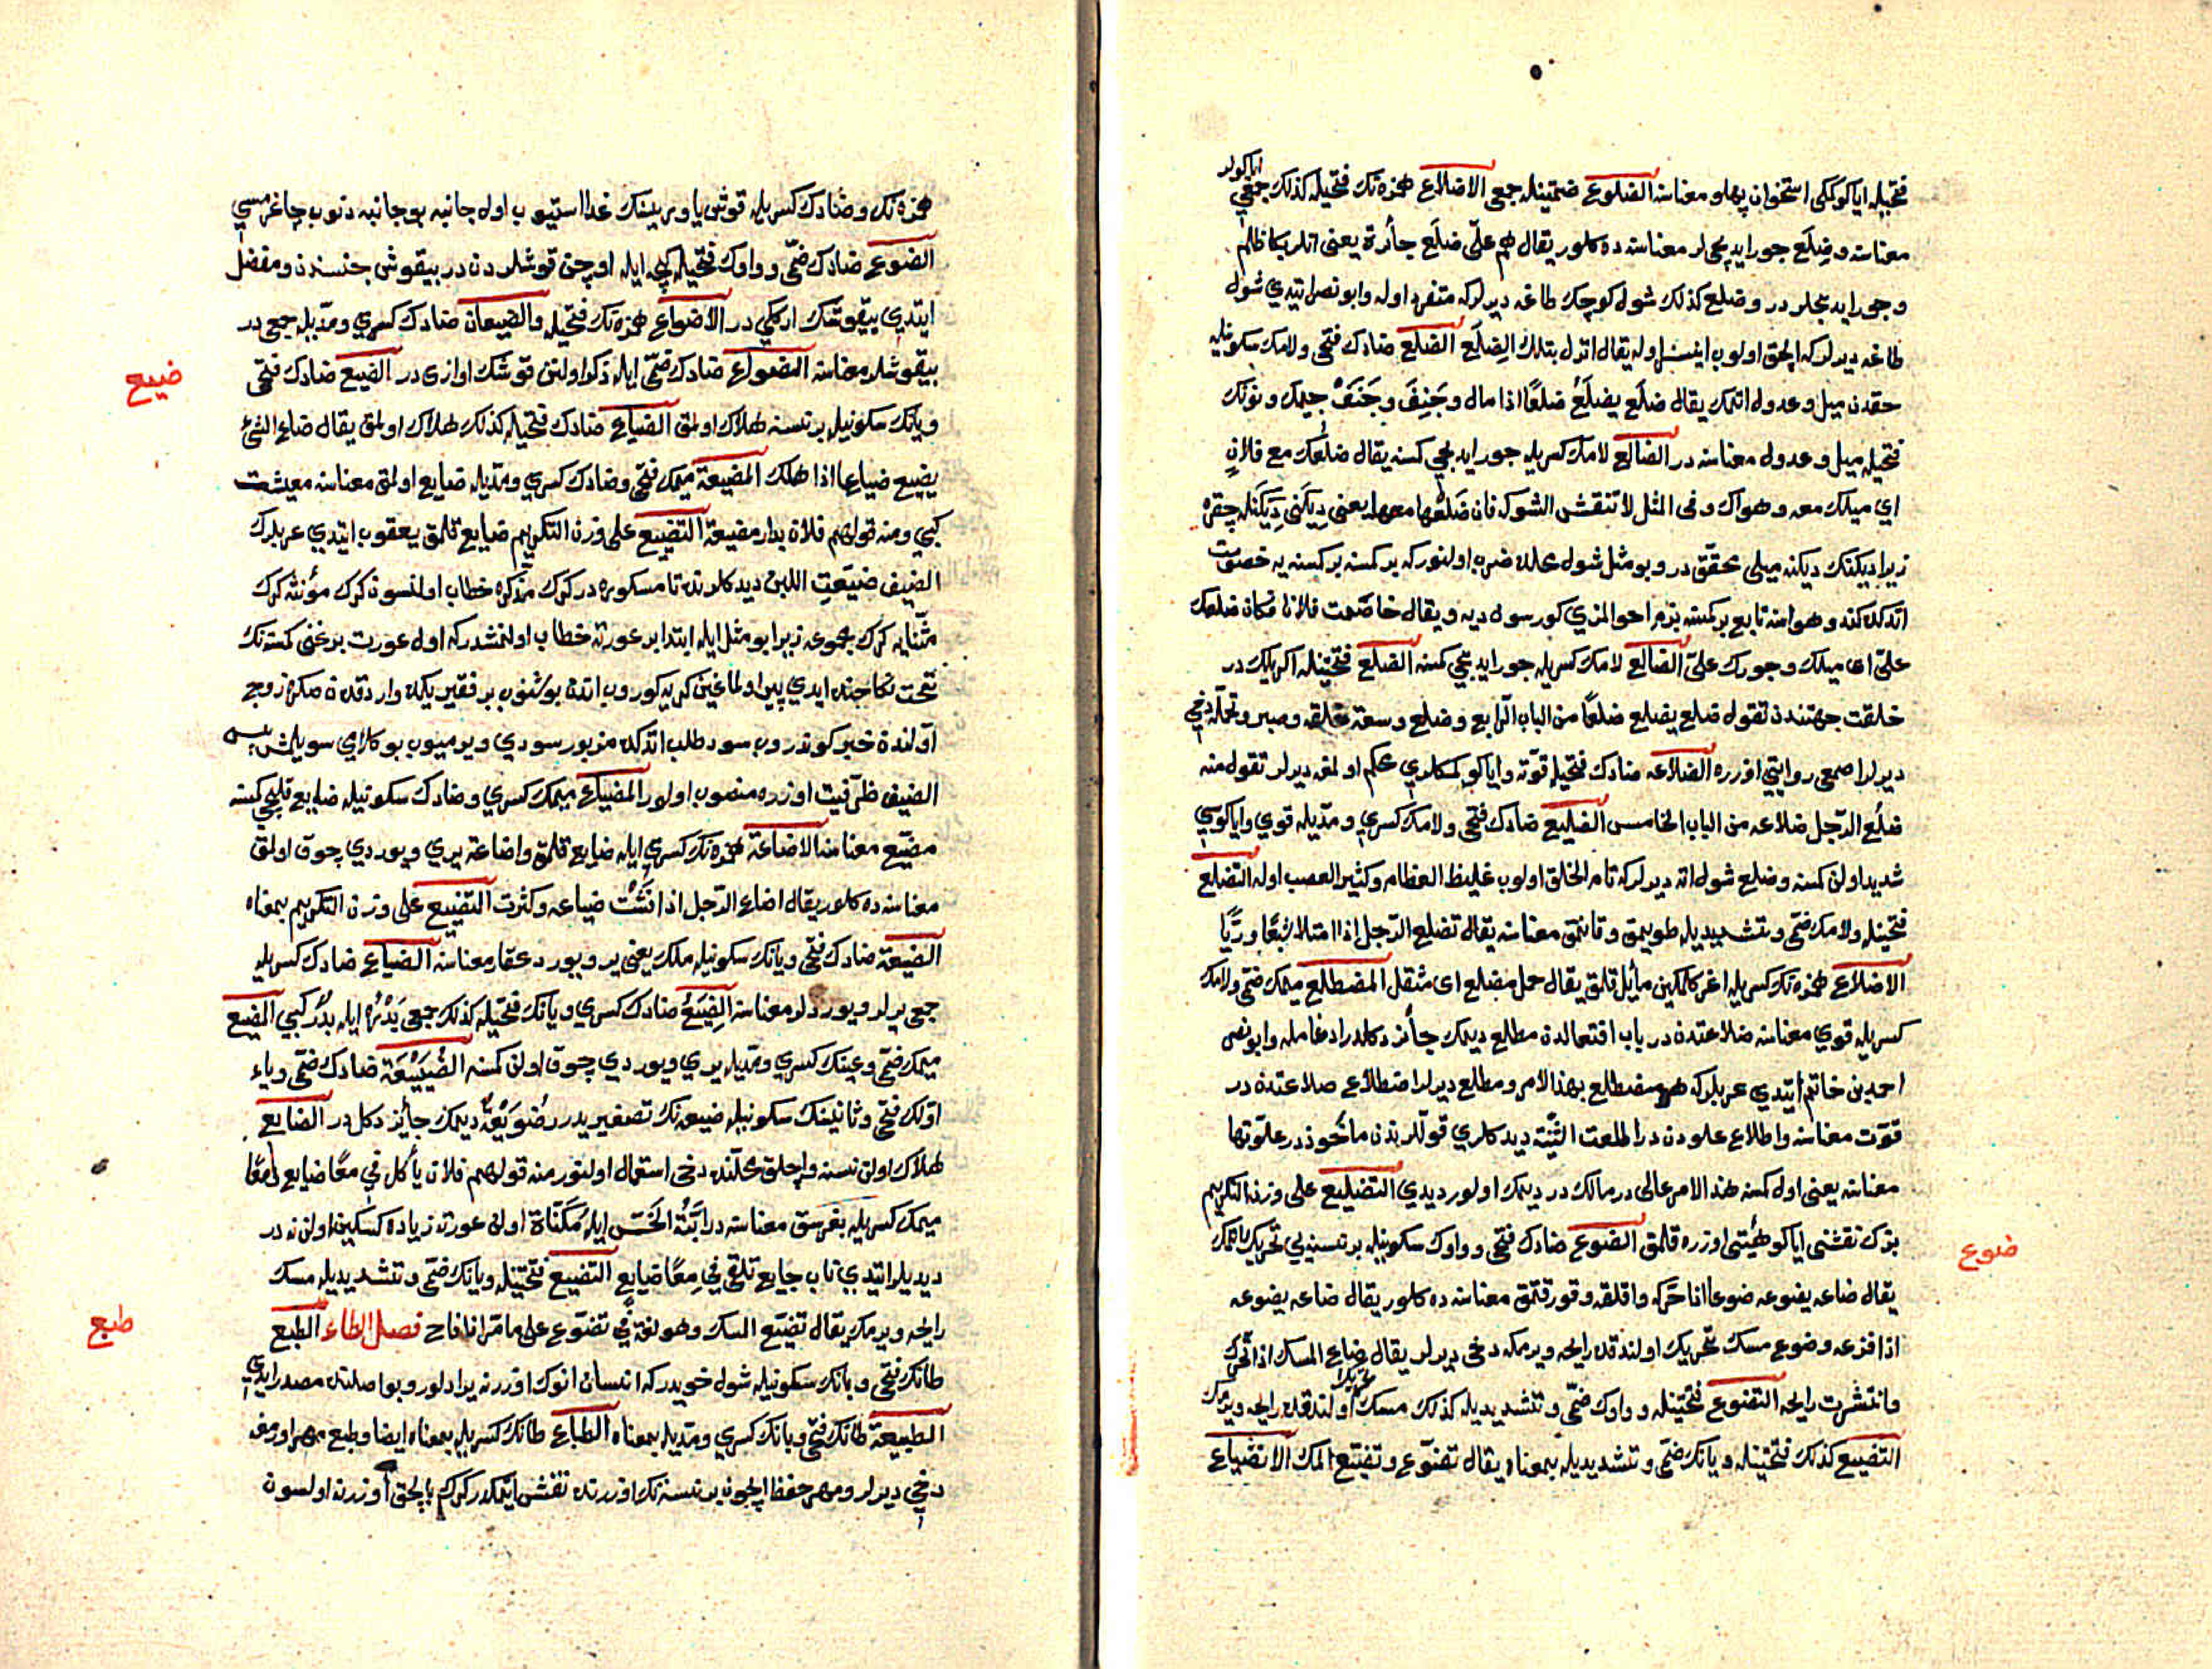 فتحيله اياكو كمكى استخوان پهلو معناسنه الضلوع ضمتينله جمعى الاضلاع همزه نك فتحيله كذلك جمعى اياكولر
معناسنه وضِلَع جور ايديجيلر معناسنه ده كلور يقال هم علىّ ضِلَع جائرة يعنى انلر بكا ظالم
وجور ايديجلر در وضلع كذلك شول كوچك طاغه ديرلر كه متفرد اوله وابو نصر ايتدي شول
طاغه ديرلر كه الچق اولوب اوله يقال انزل بتلك الضِلَع الضلع ضادك فتحى ولامك سكونيله
حقدن ميل وعدول اتمك يقال ضلَع يضلَعُ ضلعًا اذا مال وجَنِفَ وجَنَفْ جيمك ونونك
فتحيله ميل وعدول معناسنه در الضالع لامك كسريله جور ايديجى كسنه يقال ضلعُك مع فلانٍ
اي ميلك معه وهواك وفى المثل لا تنقش الشوكه فان ضَلْعَها معها يعنى دِيكَنى دِيكَنله چقرمه
زيرا ديكنك ديكنه ميلى محقّق در وبو مثل شول محلده ضرب اولنور كه بر كسنه بر كسنه يه خصومت
اتدكده كندو هواسنه تابع بر كسنه بزم احوالمزي كورسون ديه ويقال خاصمت فلانا فكان ضلعك
علىّ اى ميلك وجورك علىّ الضالع لامك كسريله جور ايديجى كسنه الضلع فتحتينله اكريلك در
خلقت جهتندن تقول ضلع يضلع ضلعًا من الباب الرابع وضلع وسعة خلقه وصبر وتحمّله دخى
ديرلر اصمعى روايتى اوزره الضلاعه ضادك فتحيله قوّته واياكو كمكلري محكم اولمغه ديرلر تقول منه
ضلُع الرّجل ضلاعه من الباب الخامس الضليع ضادك فتحى ولامك كسري ومدّيله قوي واياكوسى
شديد اولن كسنه وضلع شول اته ديرلر كه تام الخلق اولوب غليظ العظام وكثير العصب اوله التضلع
فتحينله ولامك ضمّى وتشديديله طويمق وقانمق معناسنه يقال تضلع الرّجل اذا امتلا شبعًا وريًّا
الاضلاع همزه نك كسريله اغر كلمكين مائل قلمق يقال حمل مضلع اى مثقل المضطلع ميمك ضمّى ولامك
كسريله قوي معناسنه ضلاعتدن در باب افتعالدن مطلع ديمك جائز دكلدر ادغامله وابو نصر
احمد بن حاتم ايتدي عربلر كه هو مضطلع بهذا الامر ومطلع ديرلر اضطلاع ضلاعتدن در
قوّت معناسنه واطلاع علودن در اطلعت الثنيّة ديدكلري قوللرندن ماخوذ در علوتها
معناسنه يعنى اول كسنه هذا الامر عالى در مالك در ديمك اولور ديدي التضليع على وزن التكريم
بزك نقشنى اياكو هيئتى اوزره قلمق الضوع ضادك فتحى وواوك سكونيله بر نسنه يى تحريك اتمك
يقال ضاعه يضوعه ضوعا اذا حرّكه واقلقه وقورقتمق معناسنه ده كلور يقال ضاعه يضوعه
اذا فزعه وضوع مسك تحريك اولندقده رايحه ويرمكه دخى ديرلر يقال ضاع المسك اذا تحرّك
وانتشرت رايحه التضوع فتحتينله وواوك ضمّى وتشديديله كذلك مسك تحريك اولندقده رايحه ويرمك
التضيع كذلك فتحتينله ويانك ضمّى وتشديديله بمعناه يقال تضوّع وتضيّع المسك الانضياع
ضوع
همزه نك وضادك كسريله قوش ياوريسنك غدا استيوب اول جانبه بو جانبه دنوب چاغرمسى
الضوع ضادك ضمّى وواوك فتحيله كيجه ايله اوچن قوشلردن در بيقوش جنسندن ومفضل
ايتدي بيقوشك اركگى در الاضواع همزه نك فتحيله والضيعان ضادك كسري ومدّيله جمعى در
بيقوشلر معناسنه الضواع ضادك ضمّى ايله ذكر اولنن قوشك اوازى در الضيع ضادك فتحى
ويانك سكونيله بر نسنه هلاك اولمق الضياع ضادك فتحيله كذلك هلاك اولمق يقال ضاع الشئ
يضيع ضياعا اذا هلك المضيعة ميمك فتحى وضادك كسري ومدّيله ضايع اولمق معناسنه معيشت
كبى ومنه قولهم فلان بدار مضيعة التضييع على وزن التكريم ضايع قلمق يعقوب ايتدي عربلرك
الصيف ضيّعتِ اللبن ديدكلرنده تا مكسوره در كرك مذكره خطاب اولنسون كرك مؤنثه كرك
مثنّايه كرك مجموعه زيرا بو مثل ايله ابتدا بر عورته خطاب اولنمشدر كه اول عورت بر غنى كمسنه نك
تحت نكاحنده ايدي پير اولماغين كريه كوروب اتدن بوشنوب بر فقير يكيده واردقدن صكره زوج
اولندن خبر كوندروب سود طلب اتدكده مزبور سودي ويرميوب بو كلامي سويلمش پس
الصيف ظرفيت اوزره منصوب اولور المضياع ميمك كسري وضادك سكونيله ضايع قليجى كسنه
مضيّع معناسنه الاضاعة همزه نك كسري ايله ضايع قلمق واضاعة يري ويوردي چوق اولمق
معناسنه ده كلور يقال اضاع الرّجل اذا فشت ضياعه وكثرت التضييع على وزن التكريم بمعناه
الضيعة ضادك فتحى ويانك سكونيله ملك يعنى ير ويورد عقار معناسنه الضياع ضادك كسريله
جمعى يرلر ويوردلر معناسنه الضِيَعُ ضادك كسري ويانك فتحيله كذلك جمعى بَدْرَه ايله بدَرْ كبى المضيع
ميمك ضمّى وعينك كسري ومدّيله يري ويوردي چوق اولن كمسنه الضُيَيْعَة ضادك ضمّى وياء
اوّلك فتحى وثانينك سكونيله ضيعه نك تصغيريدر رضُوَيْعَة ديمك جايز دكل در الضايع
هلاك اولن نسنه واچلق محلّنده دخى استعمال اولنور منه قولهم فلان يأكل في معًا ضايع امعًا
ميمك كسريله بغرسق معناسنه در ابنة الخسّ ايله مكناة اولن عورته زياده كسكين اولن نه در
ديديلر ايتدي ناب جايع تلقى في معًا ضايع التضيع فتحتينله ويانك ضمّى وتشديديله مسك
رايحه ويرمك يقال تضيّع المسك وهو لغة في تضوّع على ما مرّ اذا فاح فصل الطاء الطبع
طانك فتحى وبانك سكونيله شول خويدر كه انسان انوك اوزرنه يرادلور وبو اصلنده مصدر ايدي
الطبيعة طانك فتحى وبانك كسري ومدّيله بمعناه الطباع طانك كسريله بمعناه ايضا وطبع مهر اورمغه
دخى ديرلر ومهر حفظ ايچون بر نسنه نك اوزرنده نقش ايتمكدر كرك بالچق اوزرنه اولسون
ضيع
طبع